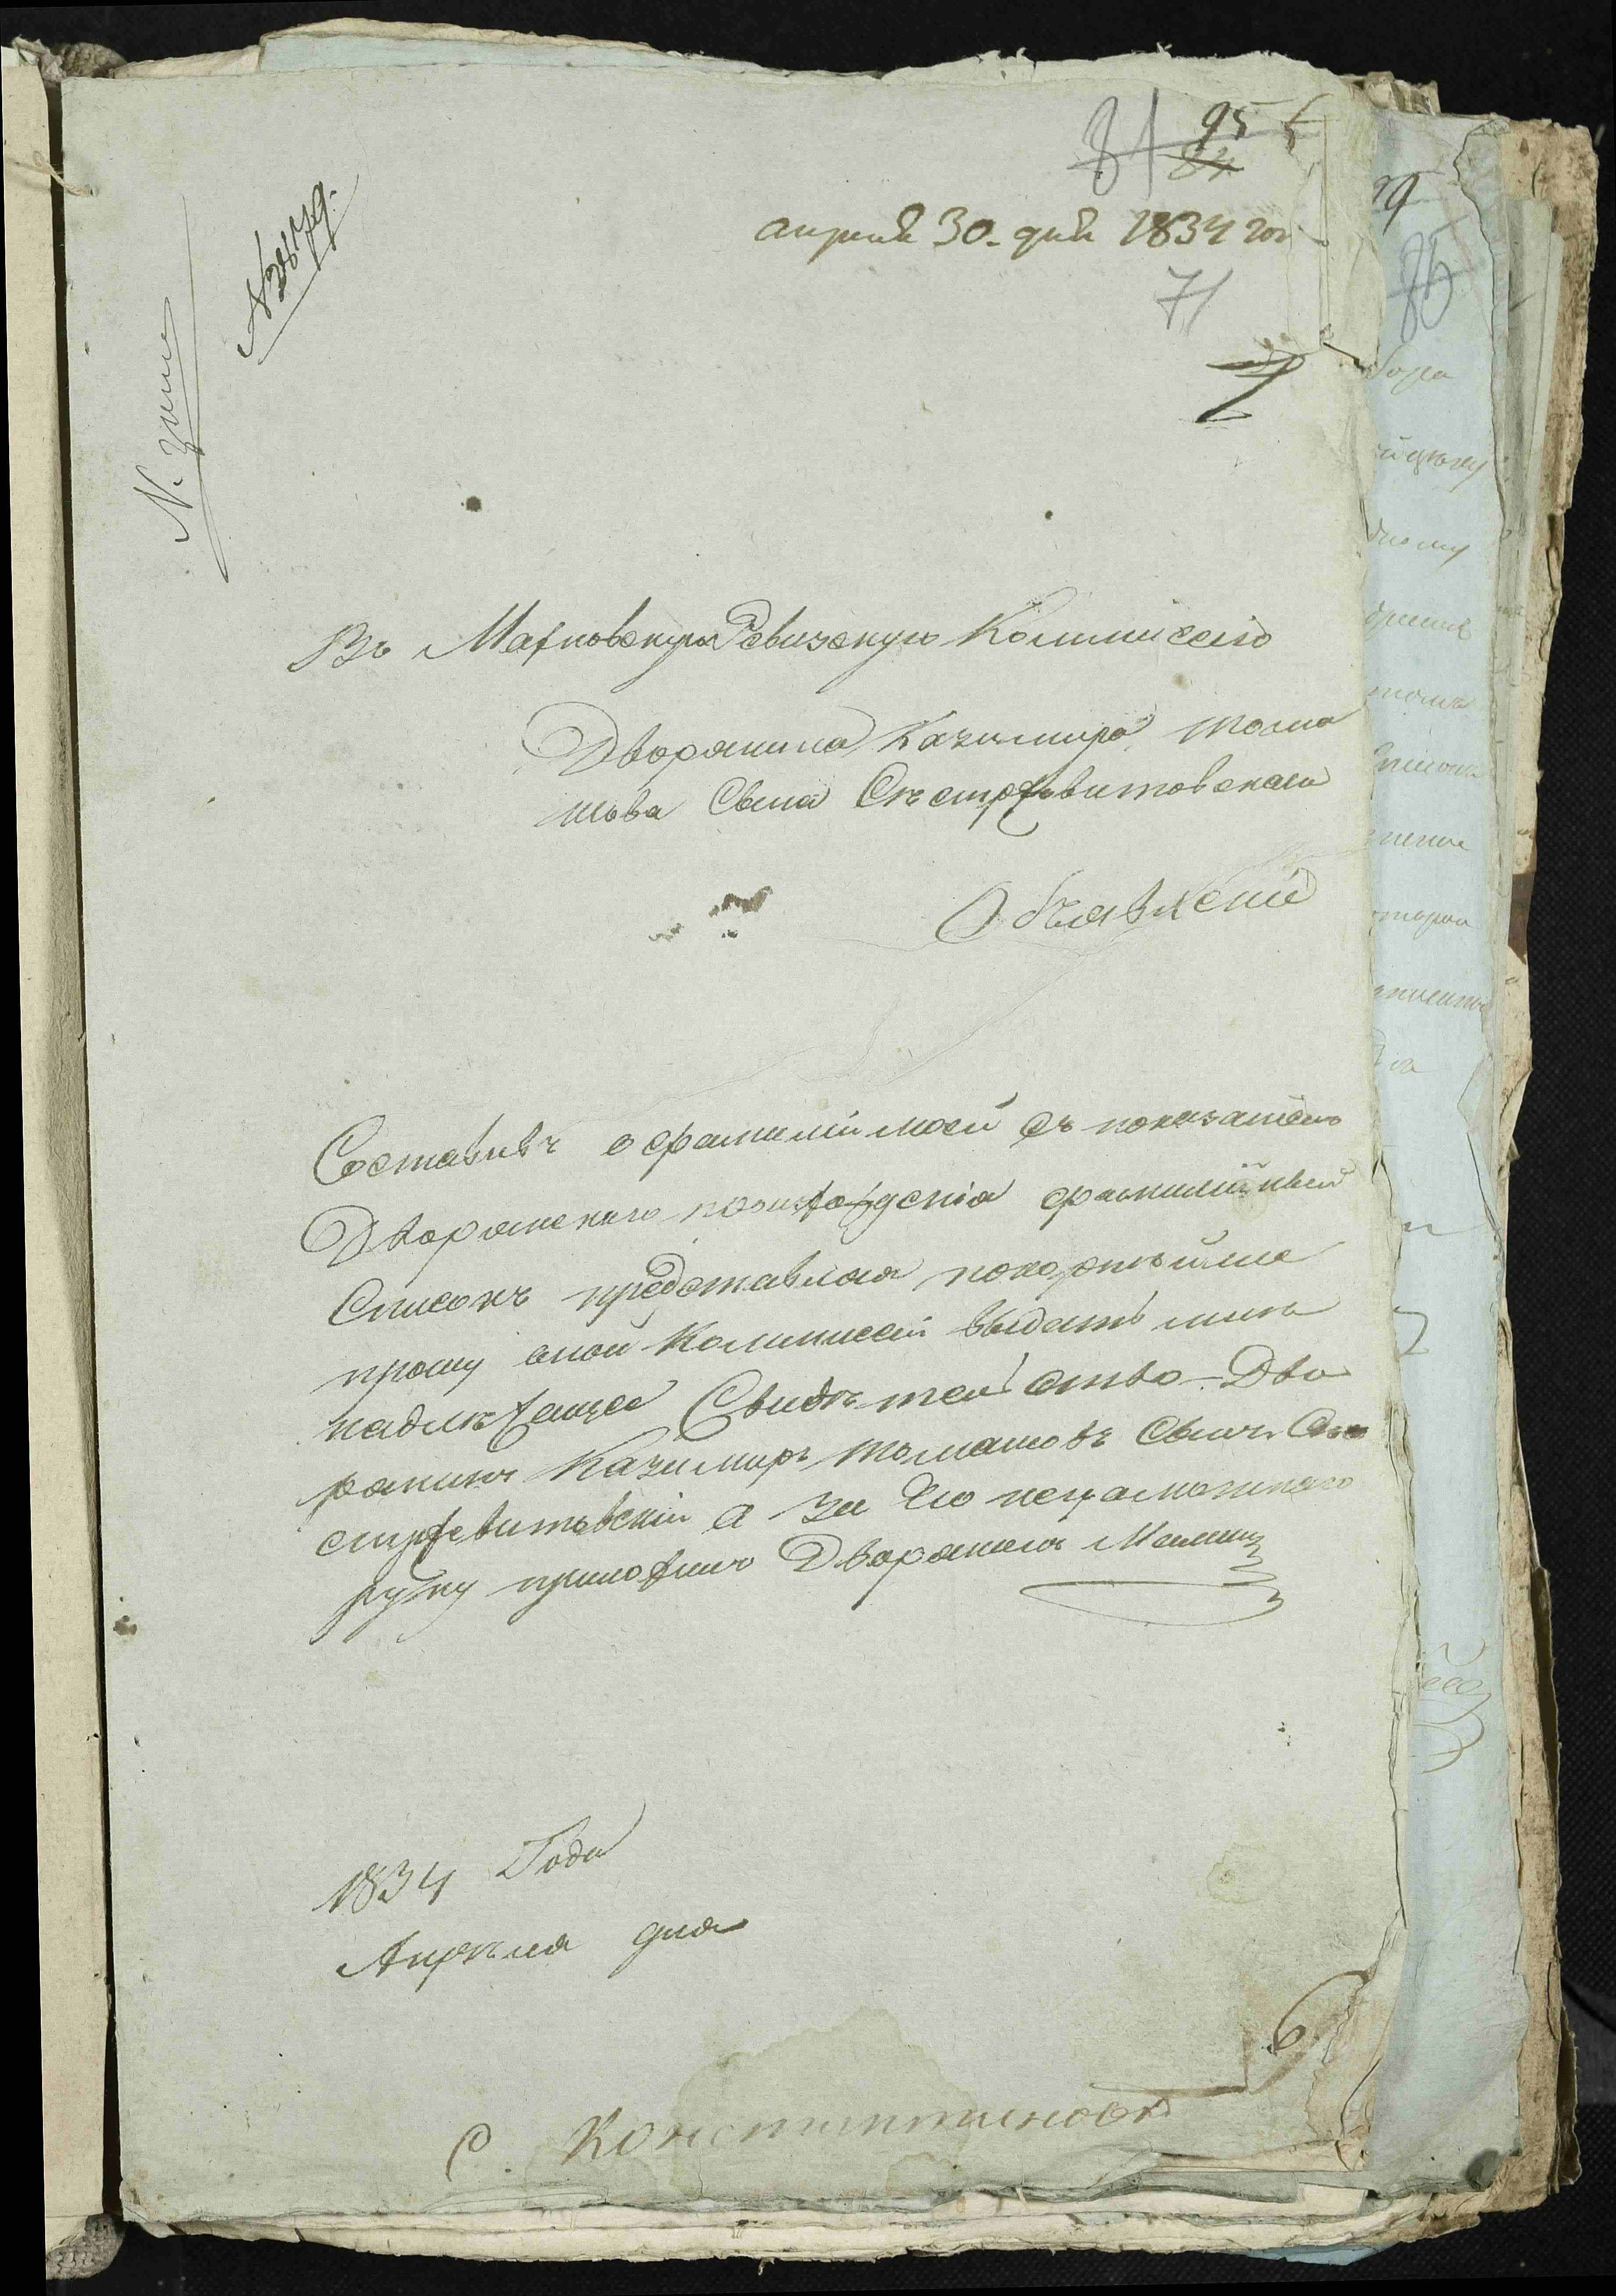 95
81 84
апреля 30. дня 1834 год
71
Въ Махновскую Ревизскую Коммиссію
Дворянина Казимира Тома
шова Сына Състржевитовскаго
Объявленіе
Составивъ о фамиліи моей съ показаніемъ
Дворянскаго произхожденія фамилійный
Списокъ представляя покорнѣйше
прошу оной Коммиссіи выдать мнѣ
надлежащее Свидѣтельство – Дво
рянинъ Казимиръ Томашовъ Сынъ Съ
стржевитовскій а за его неграмотнаго
руку приложилъ Дворянинъ
1834 Года
Апрѣля дня
С. Константиновка